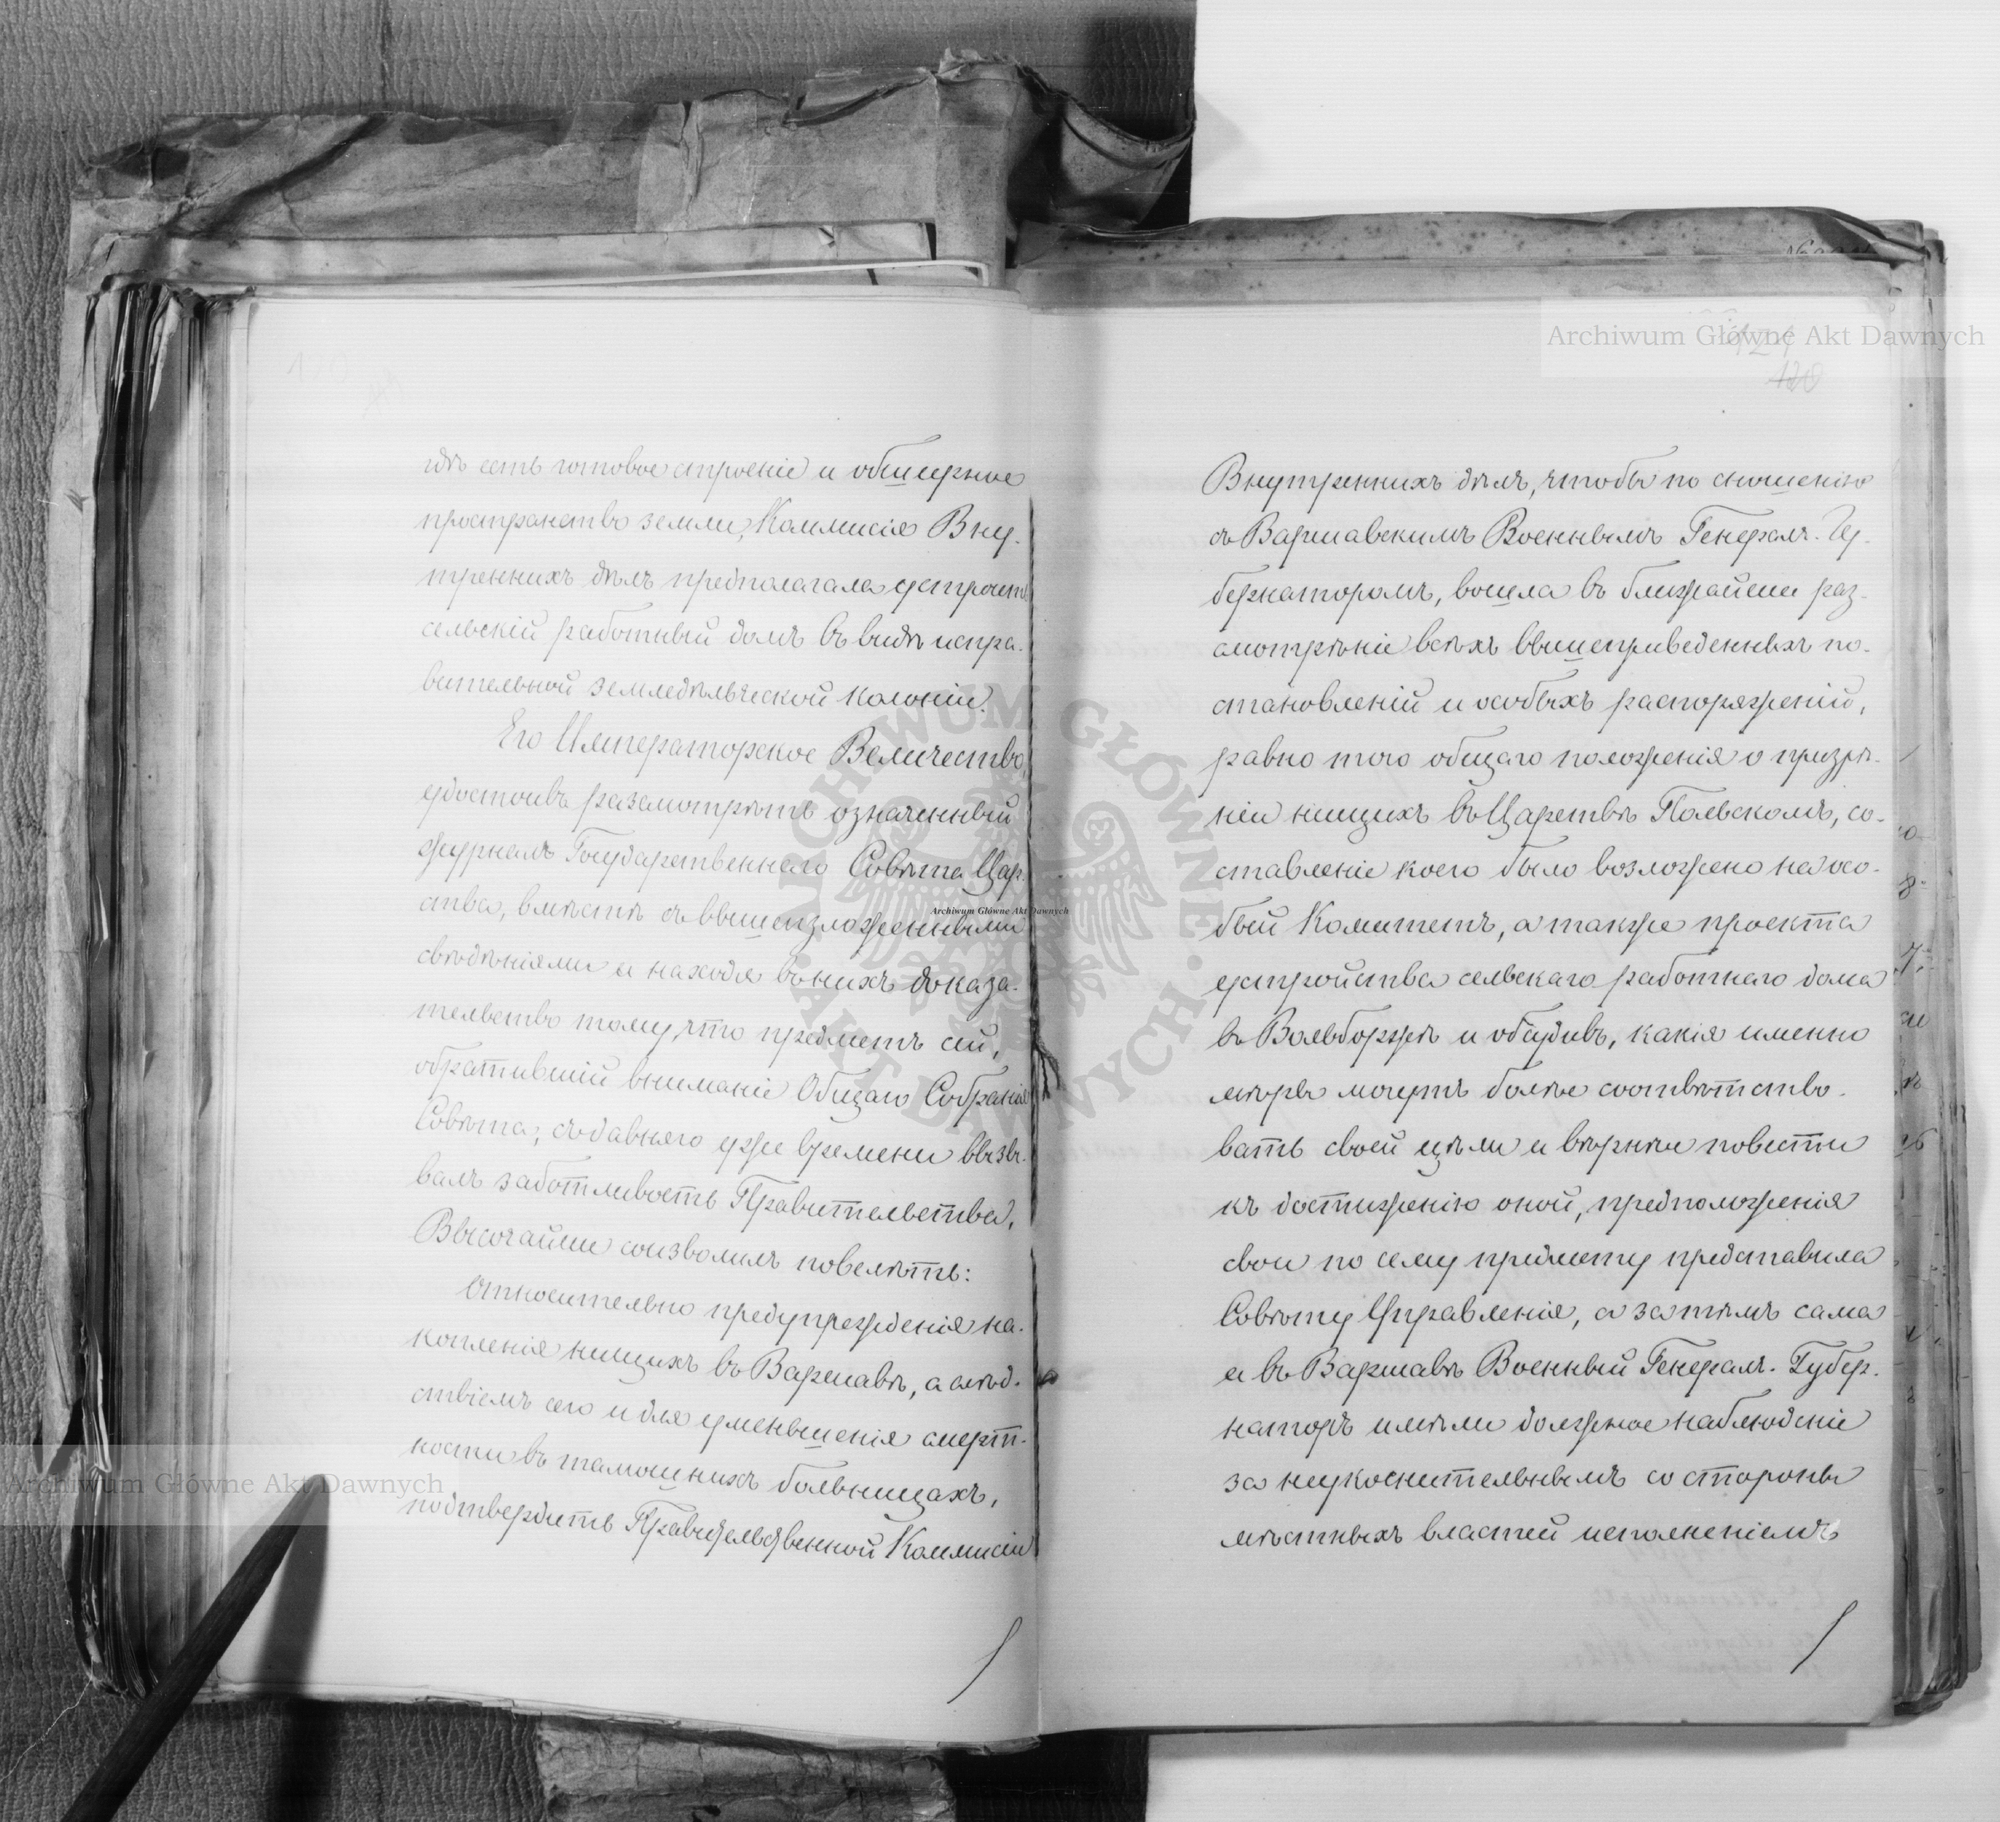 гдѣ есть готовое строеніе и обширное
пространство земли, Коммисія Вну-
треннихъ дѣлъ предполагала устроить
сельскій работный домъ въ видѣ испра-
вительной земледѣльческой колоніи.
Его Императорское Величество,
удостоивъ разсмотрѣть означенный
журналъ Государственнаго Совѣта Цар-
ства, вмѣстѣ съ вышеизложенными
свѣдѣніями и находя въ нихъ доказа-
тельство тому, что предметъ сей,
обратившій вниманіе Общаго Собранія
Совѣта, съ давняго уже времени вызы-
валъ заботливость Правительства,
Высочайше соизволилъ повелѣть:
Относительно предупрежденія на-
копленія нищихъ въ Варшавѣ, а слѣд-
ствіемъ сего и для уменьшенія смерт-
ности въ тамошнихъ больницахъ,
подтвердить Правительственной Коммисіи
121
120
Внутреннихъ дѣлъ, чтобы по сношенію
съ Варшавскимъ Военнымъ Генералъ-Гу-
бернаторомъ, вошла въ ближайшее раз-
смотрѣніе всѣхъ вышеприведенныхъ по-
становленій и особыхъ распоряженій,
равно того общаго положенія о призрѣ-
ніи нищихъ въ Царствѣ Польскомъ, со-
ставленіе коего было возложено на осо-
бый Комитетъ, а также проекта
устройства сельскаго работнаго дома
въ Вольборжѣ и обсудивъ, какія именно
мѣры могутъ болѣе соотвѣтство-
вать своей цѣли и вѣрнѣе повести
къ достиженію оной, предположенія
свои по сему предмету представила
Совѣту Управленія, а за тѣмъ сама
и въ Варшавѣ Военный Генералъ-Губер-
наторъ имѣли должное наблюденіе
за неукоснительнымъ со стороны
мѣстныхъ властей исполненіемъ
Archiwum Główne Akt Dawnych
Archiwum Główne Akt Dawnych
Archiwum Główne Akt Dawnych
ARCHIWUM GŁÓWNE AKT DAWNYCH